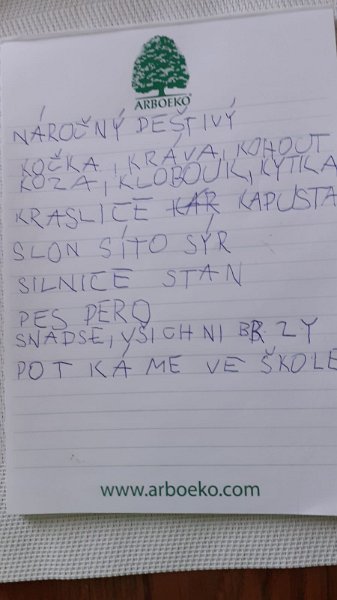 ARBOEKO®
NÁROČNÝ DEŠTIVÝ
KOČKA, KRÁVA, KOHOUT
KOZA, KLOBOUK, KYTKA
KRASLICE KAR KAPUSTA
SLON SÍTO SÝR
SILNICE STAN
PES PERO
SNADSE, VŠICHNI BRZY
POTKÁME VE ŠKOLE
www.arboeko.com